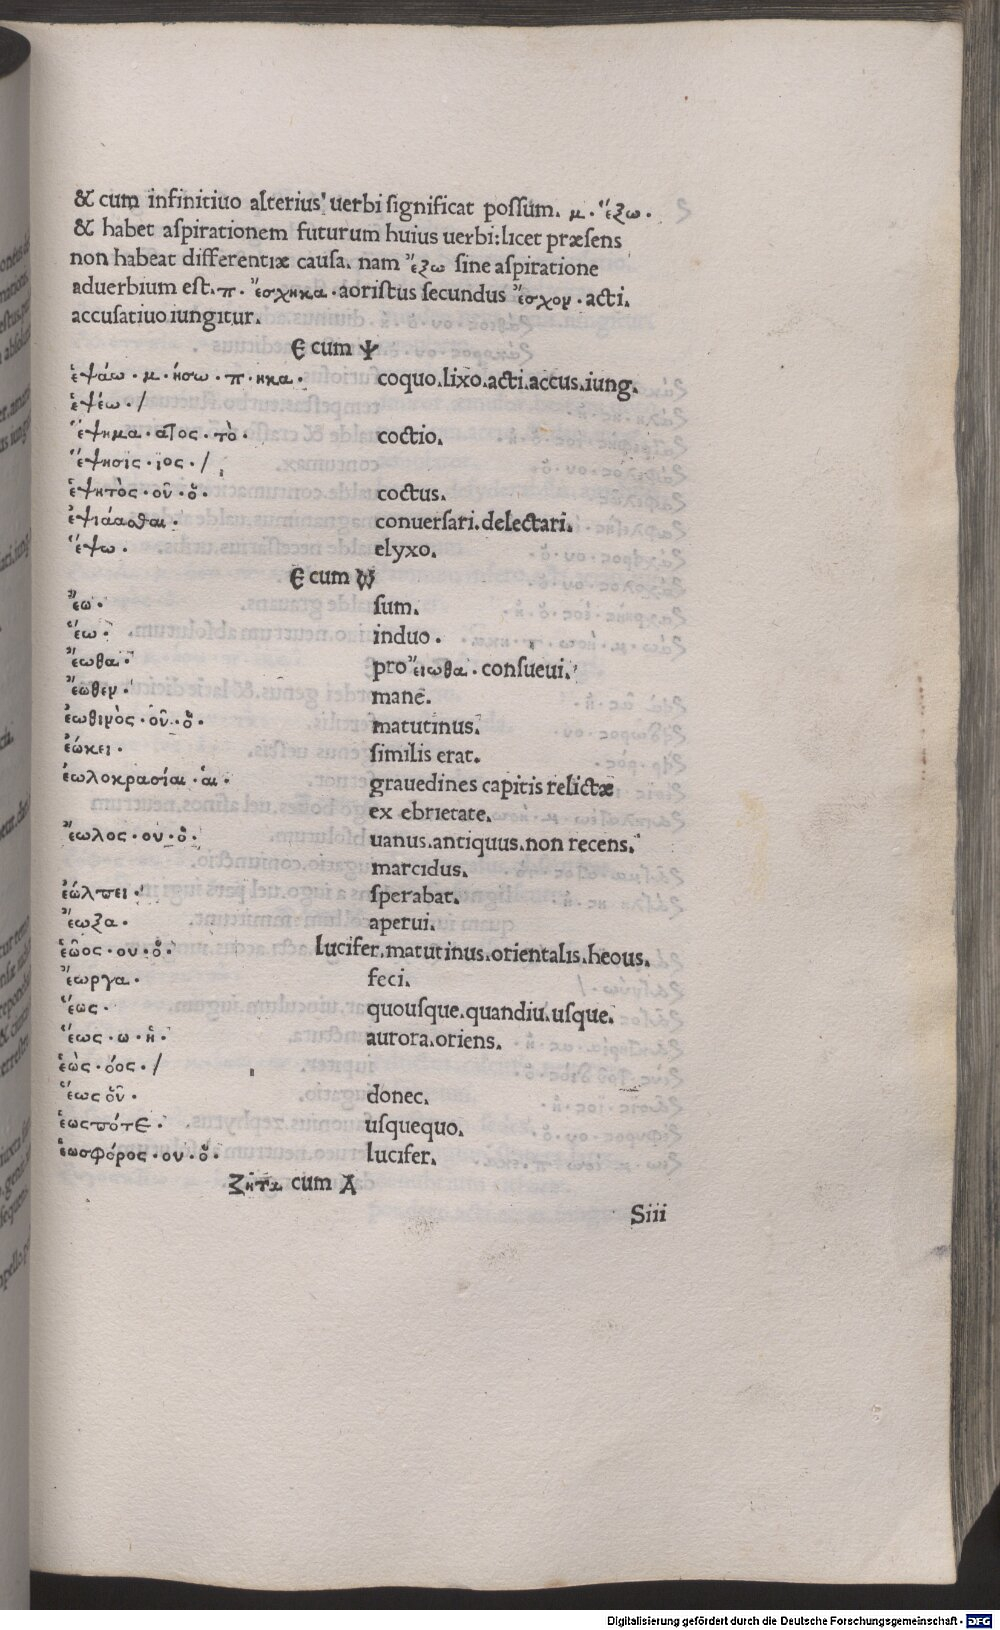 & cum infinitiuo alterius uerbi significat possum. μ. ἕξω.
& habet aspirationem futurum huius uerbi:licet præsens
non habeat differentiæ causa. nam ἔξω sine aspiratione
aduerbium est.π. ἔσχηκα. aoristus secundus ἔσχον. acti.
accusatiuo iungitur.
E cum Ψ
ἑψάω. μ. ήσω. π. ηκα. coquo.lixo.acti.accus.iung.
ἑψέω./
ἕψημα. ατος. τὸ. coctio.
ἕψησις. ιος./
ἑψητὸς. οῦ. ὁ. coctus.
ἑψιάασθαι. conuersari.delectari.
ἕψω. elyxo.
E cum ω
ἔω. sum.
ἕω. induo.
ἔωθα. pro εἴωθα. consueui.
ἔωθεν. mane.
ἑωθινὸς. οῦ. ὁ. matutinus.
ἐώκει. similis erat.
ἑωλοκρασίαι. αἱ. grauedines capitis relictæ
ex ebrietate.
ἕωλος. ου. ὁ. uanus.antiquus.non recens.
marcidus.
ἐώλπει. sperabat.
ἔωξα. aperui.
ἑῶος. ου. ὁ. lucifer.matutinus.orientalis.heous.
ἔωργα. feci.
ἕως. quousque.quandiu.usque.
ἕως. ω. ἡ. aurora.oriens.
ἑὼς. όος./
ἕως οὗ. donec.
ἑωσπότε. usquequo.
ἑωσφόρος. ου. ὁ. lucifer.
Ζητα cum A
Siii
Digitalisierung gefördert durch die Deutsche Forschungsgemeinschaft - DFG